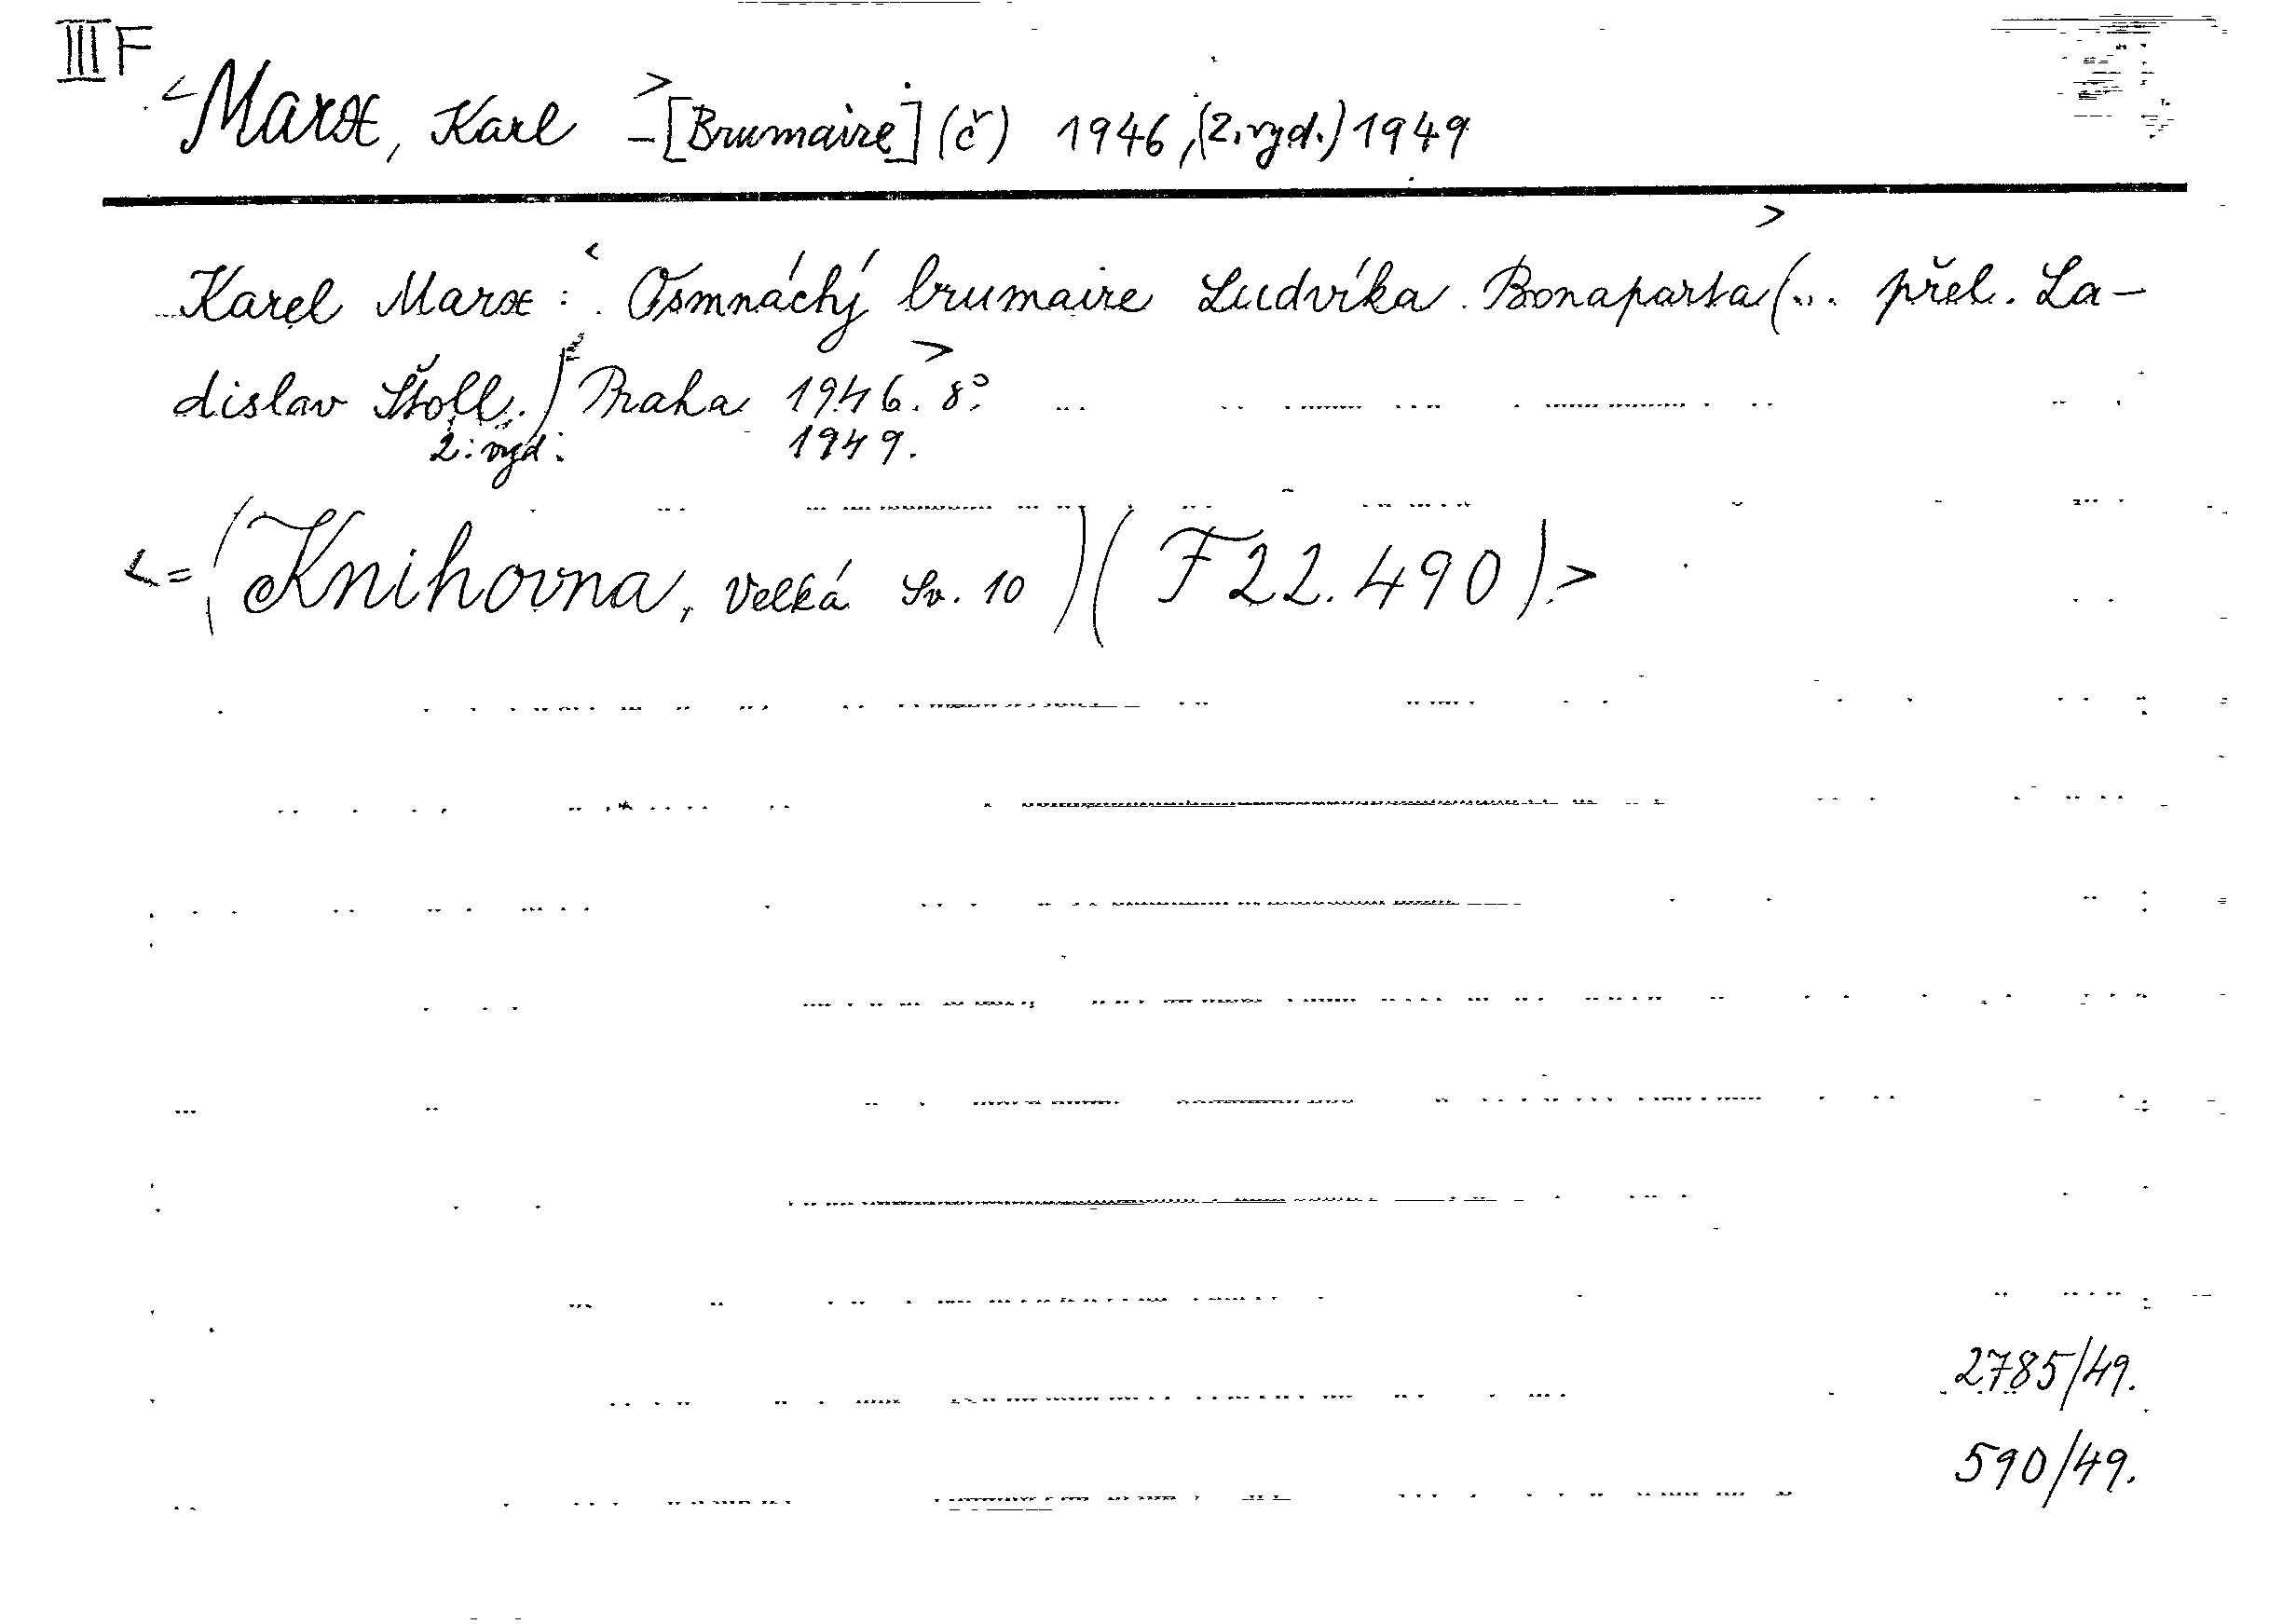 III F
<Marx, Karl >-[Brumaire] (č) 1946, (2. vyd.) 1949
Karel Marx: <Osmnáchý brumaire Ludvíka Bonaparta> (... přel. La-
dislav Štoll.) Praha 1946.> 8°.
2. vyd. 1949.
<=(Knihovna, Velká Sv. 10) (F 22.490)>
2785/49.
590/49.